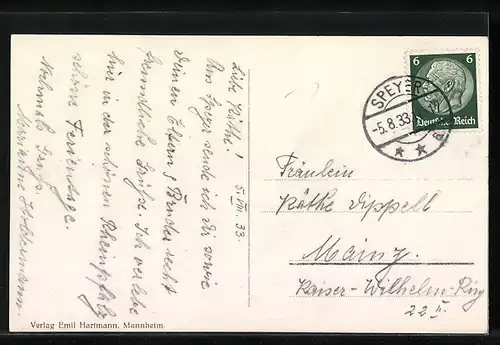 Liebe Käthe!
5. VIII. 33.
Von Speyer sende ich Dir sowie
Deinen Eltern & Bruder recht
freundliche Grüße. Ich verlebe
hier in der schönen Rheinpfalz
schöne Ferientage.
Nochmals Gruß.
Marianne
Verlag Emil Hartmann, Mannheim.
6 6
Deutsches Reich
SPEYER
-5.8.33
Fräulein
Käthe Dippell
Mainz.
Kaiser-Wilhelm-Ring
22 II.